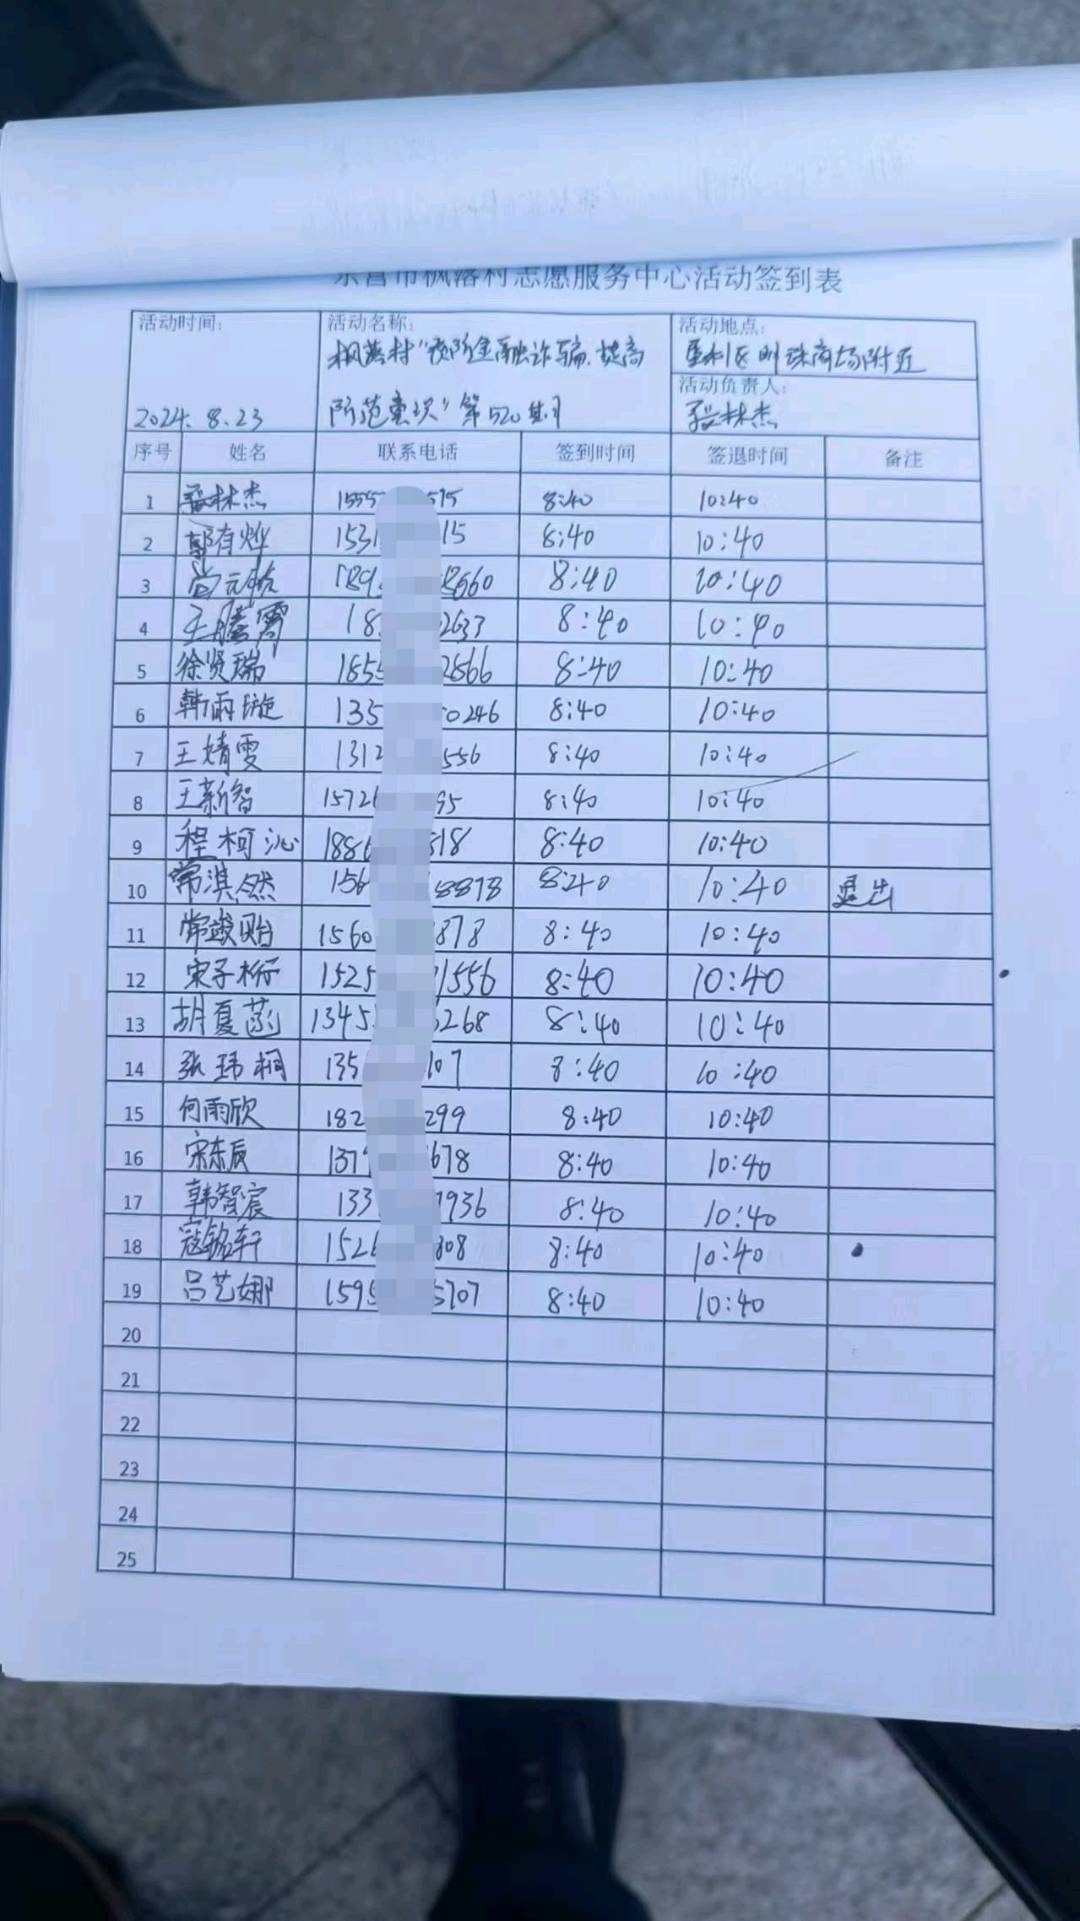 东营市枫落村志愿服务中心活动签到表
活动时间: 2024.8.23
活动名称: 枫落村"预防金融诈骗,提高
防范意识"第520期
活动地点:
垦利区明珠商场附近
活动负责人:
张林杰
序号 姓名 联系电话 签到时间 签退时间 备注
1 张林杰 1555 575 8:40 10:40
2 郭有烨 1531 15 8:40 10:40
3 尚元 189 8660 8:40 10:40
4 王腾霄 18 2633 8:40 10:40
5 徐贤瑞 1855 2866 8:40 10:40
6 韩雨璇 135 0246 8:40 10:40
7 王婧雯 1312 556 8:40 10:40
8 王新智 15726 95 8:40 10:40
9 程柯沁 1886 818 8:40 10:40
10 常淇然 156 8878 8:40 10:40 退出
11 常竣贻 1560 878 8:40 10:40
12 宋子桁 1525 1556 8:40 10:40
13 胡夏菡 1345 268 8:40 10:40
14 张玮桐 135 107 8:40 10:40
15 何雨欣 182 299 8:40 10:40
16 宋东辰 137 678 8:40 10:40
17 韩智宸 133 7936 8:40 10:40
18 寇铭轩 1526 808 8:40 10:40
19 吕艺娜 1595 5707 8:40 10:40
20
21
22
23
24
25